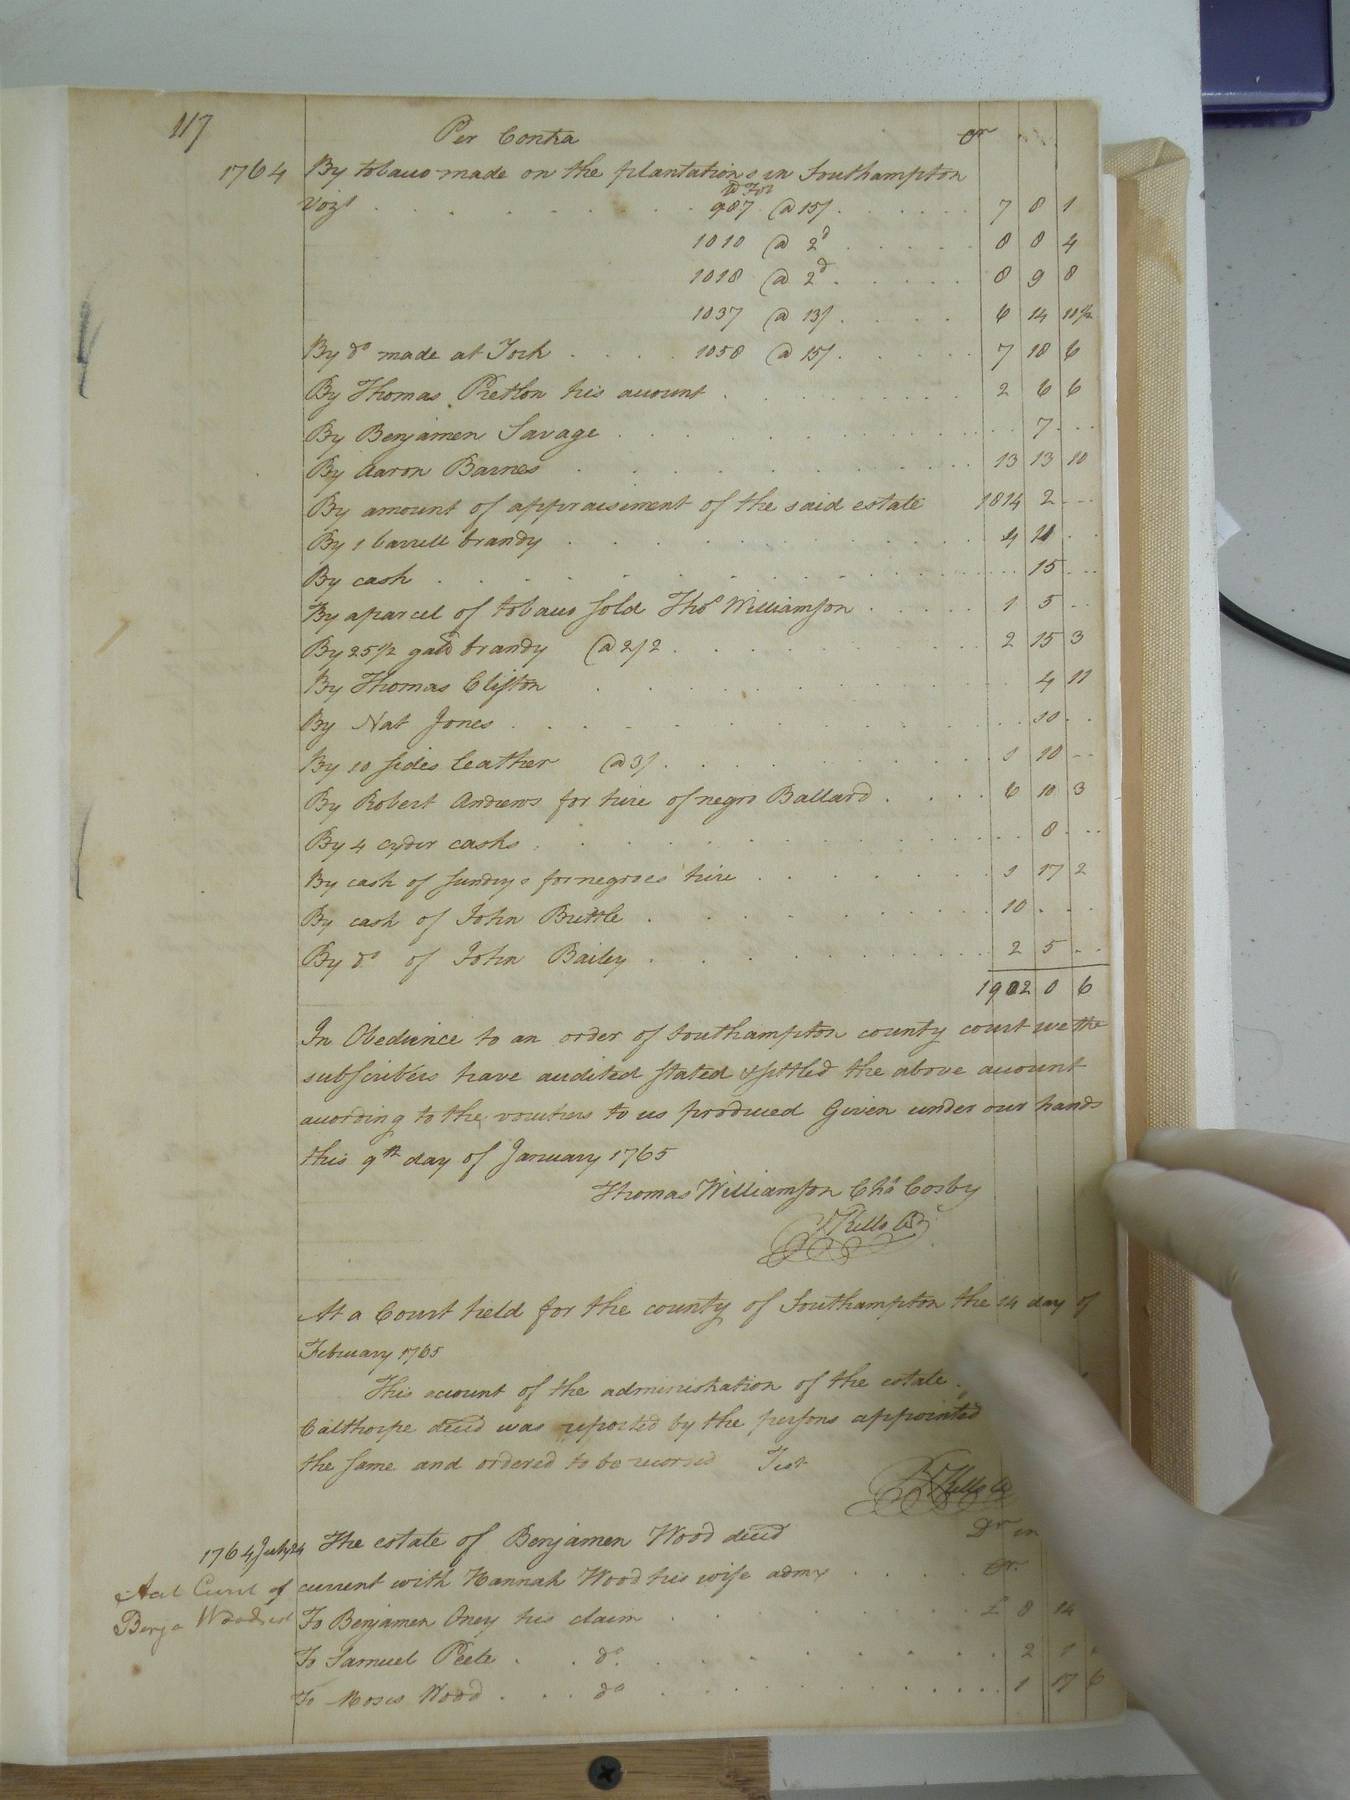 117 Per Contra Cr
1764 By tobacco made on the plantations in Southampton
vizt 987 @ 15/ 7 8 1
1010 @ 2d 8 8 4
1018 @ 2d 8 9 8
1037 @ 13/ 6 14 10½
By do made at York 1058 @ 15/ 7 18 6
By Thomas Pretlon his acount 2 6 6
By Benjamen Savage 7
By Aaron Barnes 13 13 10
By amount of appraisment of the said estate 1814 2
By 1 barrell brandy 4 11
By cash 15
By aparcel of tobacco sold Thos Williamson 1 5
By 25½ galls brandy @ 2/2 2 15 3
By Thomas Clifton 4 11
By Nat Jones 10
By 10 sides leather @ 3/ 1 10
By Robert Andrews for hire of negro Ballard 6 10 3
By 4 cyder casks 8
By cash of sundrys for negroes hire 1 17 2
By cash of John Buttle 10
By do of John Bailey 2 5
1902 0 6
In Obedience to an order of Southampton county court we the
subscribers have audited stated & settled the above acount
acording to the vouchers to us produced Given under our hands
this 9th day of January 1765
Thomas Williamson Chs Cosby
At a Court held for the county of Southampton the 14 day of
February 1765
This acount of the administration of the estate
Calthorpe decd was reported by the persons appointed
the same and ordered to be recorded Test
1764 July 24 The estate of Benjamen Wood decd Dr in
Act Curt of current with Hannah Wood his wife admx Cr
Benja Wood est To Benjamen Oney his claim £ 8 14
To Samuel Peete do 2 1
To Moses Wood do 1 17 6